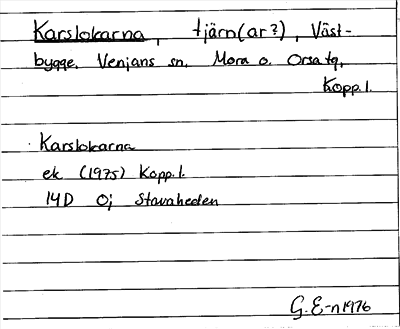 Karslokarna, tjärn(ar?), Väst-
bygge. Venjans sn. Mora o. Orsa tg.
Kopp. l.
Karslokarna
ek (1975) Kopp. l.
14D 0j Stavaheden
G. E-n 1976